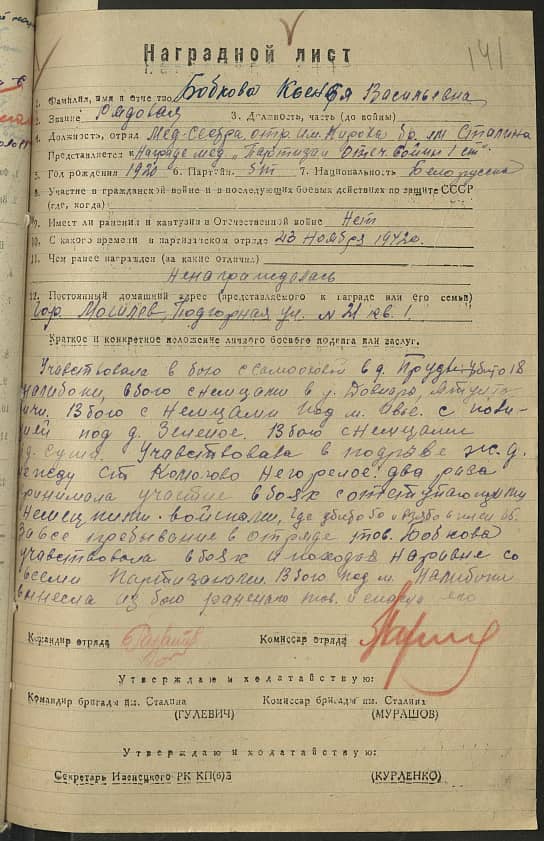 141
Наградной лист
1. Фамилия, имя и отчество Бобкова Ксения Васильевна
2. Звание Рядовая 3. Должность, часть (до войны)
4. Должность, отряд Мед-сестра отр. им. Кирова бр. им Сталина
Представляется к Награде мед. „Партизан Отеч. войны 1 ст"
5. Год рождения 1920 6. Партийн. б/п 7. Национальность Белорусска
8. Участие в гражданской войне и в последующих боевых действиях по защите СССР
(где, когда)
9. Имеет ли ранения и контузии в Отечественной войне Нет
10. С какого времени в партизанском отряде 23 Ноября 1942г.
11. Чем ранее награжден (за какие отличия)
Ненаграждалась
12. Постоянный домашний адрес (представляемого к награде или его семьи)
Гор. Могилев, Подгорная ул. № 21 кв. 1.
Краткое и конкретное изложение личного боевого подвига или заслуг.
Учавствовала в бою с самооховой в д. Пруды убито 18
Налибоки, в бою с немцами в д.
В бою с немцами под м. с
под д. Зеленое. В бою с немцами
д. Суша. Учавствовала в подрыве ж.д.
между ст Колосово Негорелое. два раза
принимала участие в боях с отступающими
немецкими войсками, где убито
За все пребывание в отряде тов. Бобкова
учавствовала в боях и походах наравне со
всеми Партизанами. В бою под м. Налибоки
вынесла из бою раненого тов. и спасла его
Командир отряда Комиссар отряда
Утверждаю и ходатайствую:
Командир бригады им. Сталина Комиссар бригады им. Сталина
(ГУЛЕВИЧ) (МУРАШОВ)
Утверждаю и ходатайствую:
Секретарь Ивенецкого РК КП(б)Б (КУРЛЕНКО)